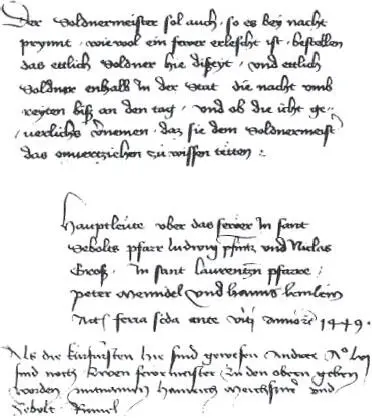 Der Soldnermeister sol auch, so es bey nacht
prynnt, wie wol ein fewer erlescht ist, bestellen
das ettlich Soldner hie disseyt, und ettlich
Soldner enhalb In der Stat die nacht umb
reyten biß an den tag, und ob die icht ge-
verlichs v̄nemen, daz sie dem Soldnermeist̄
das onvertziehen zu wissen tetten :
Hauptleute uber das fewer In sant
Sebolts pfarr ludwig pfintz und Niclas
Groß, In sant laurentzn pfarre
peter Mendel und hanns
Act feria scda ante viti anno 1449.
Als die fürsten hie sind gewesen Andree Aº lvj
sind noch zwen fewrmeister zu den obern geben
worden Heinrich und
Sebolt